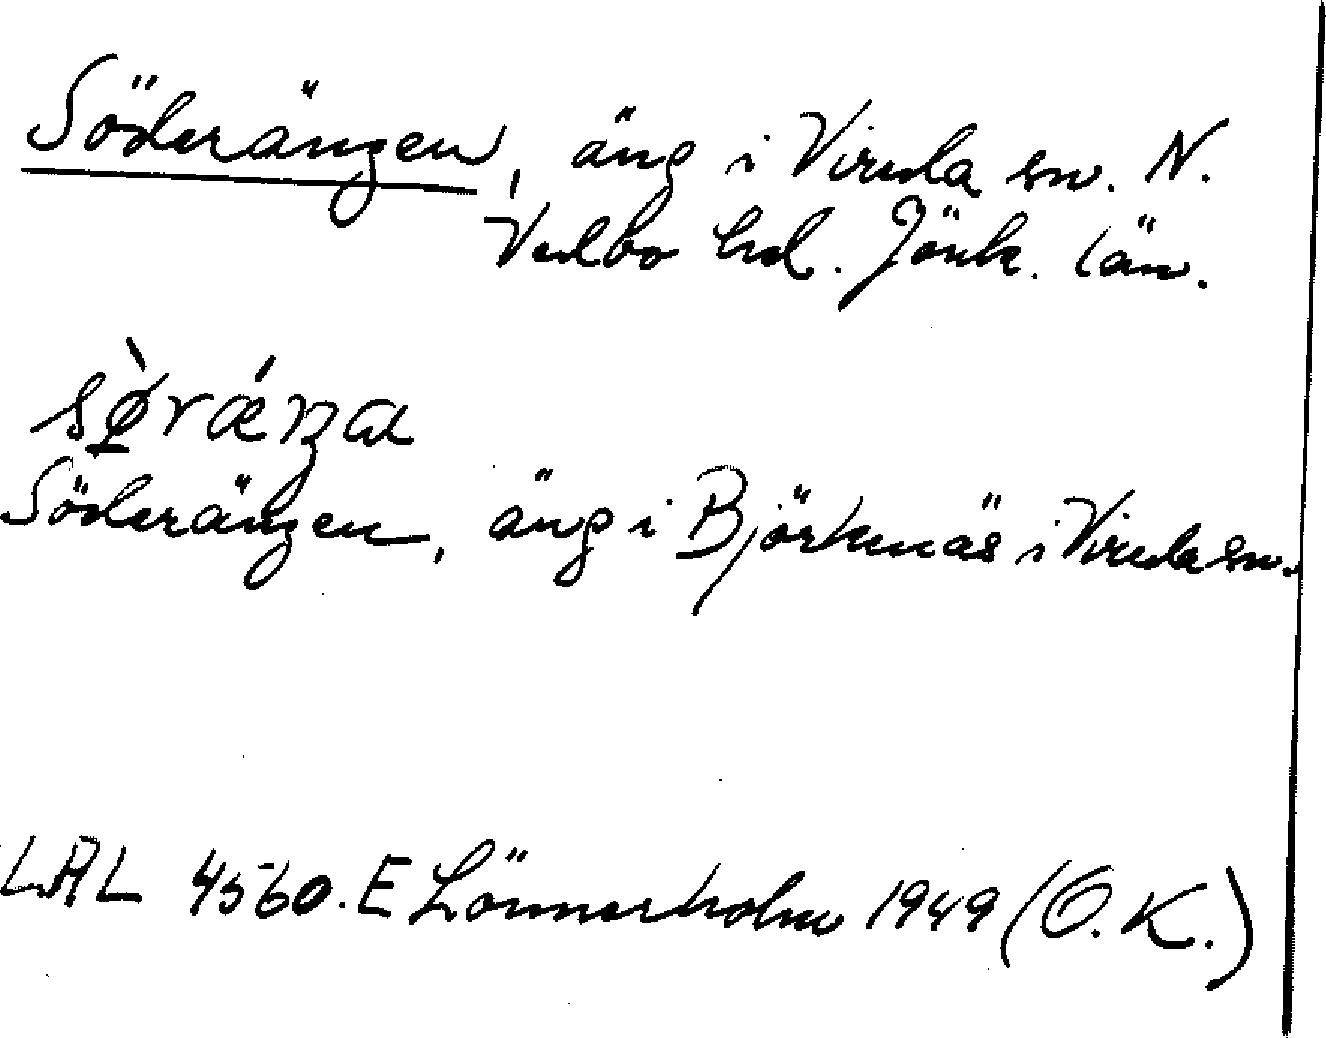 Söderängen, äng i Vireda sn. N.
Vedbo hd. Jönk. län.
sø̀rǽŋa
Söderängen, äng i Björknäs i Vireda sn.
LAL 4560. E Lönnerholm 1949 (O.K.)